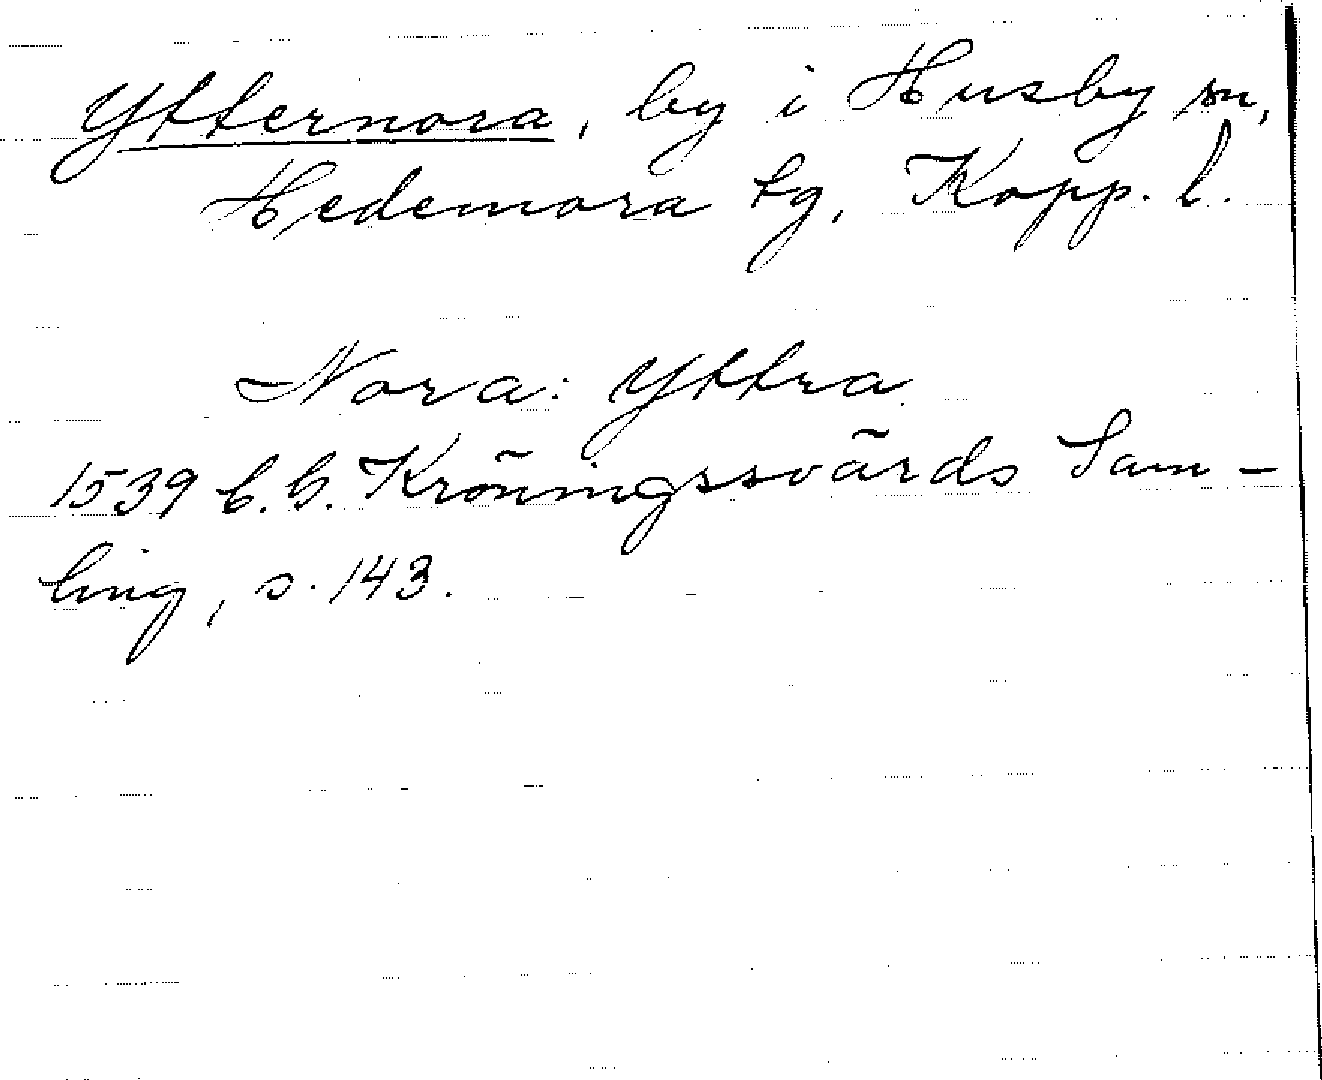 Ytternora, by i Husby sn,
Hedemora tg, Kopp. l.
Nora: Yttra
1539 C.G. Kröningssvärds Sam-
ling, s. 143.